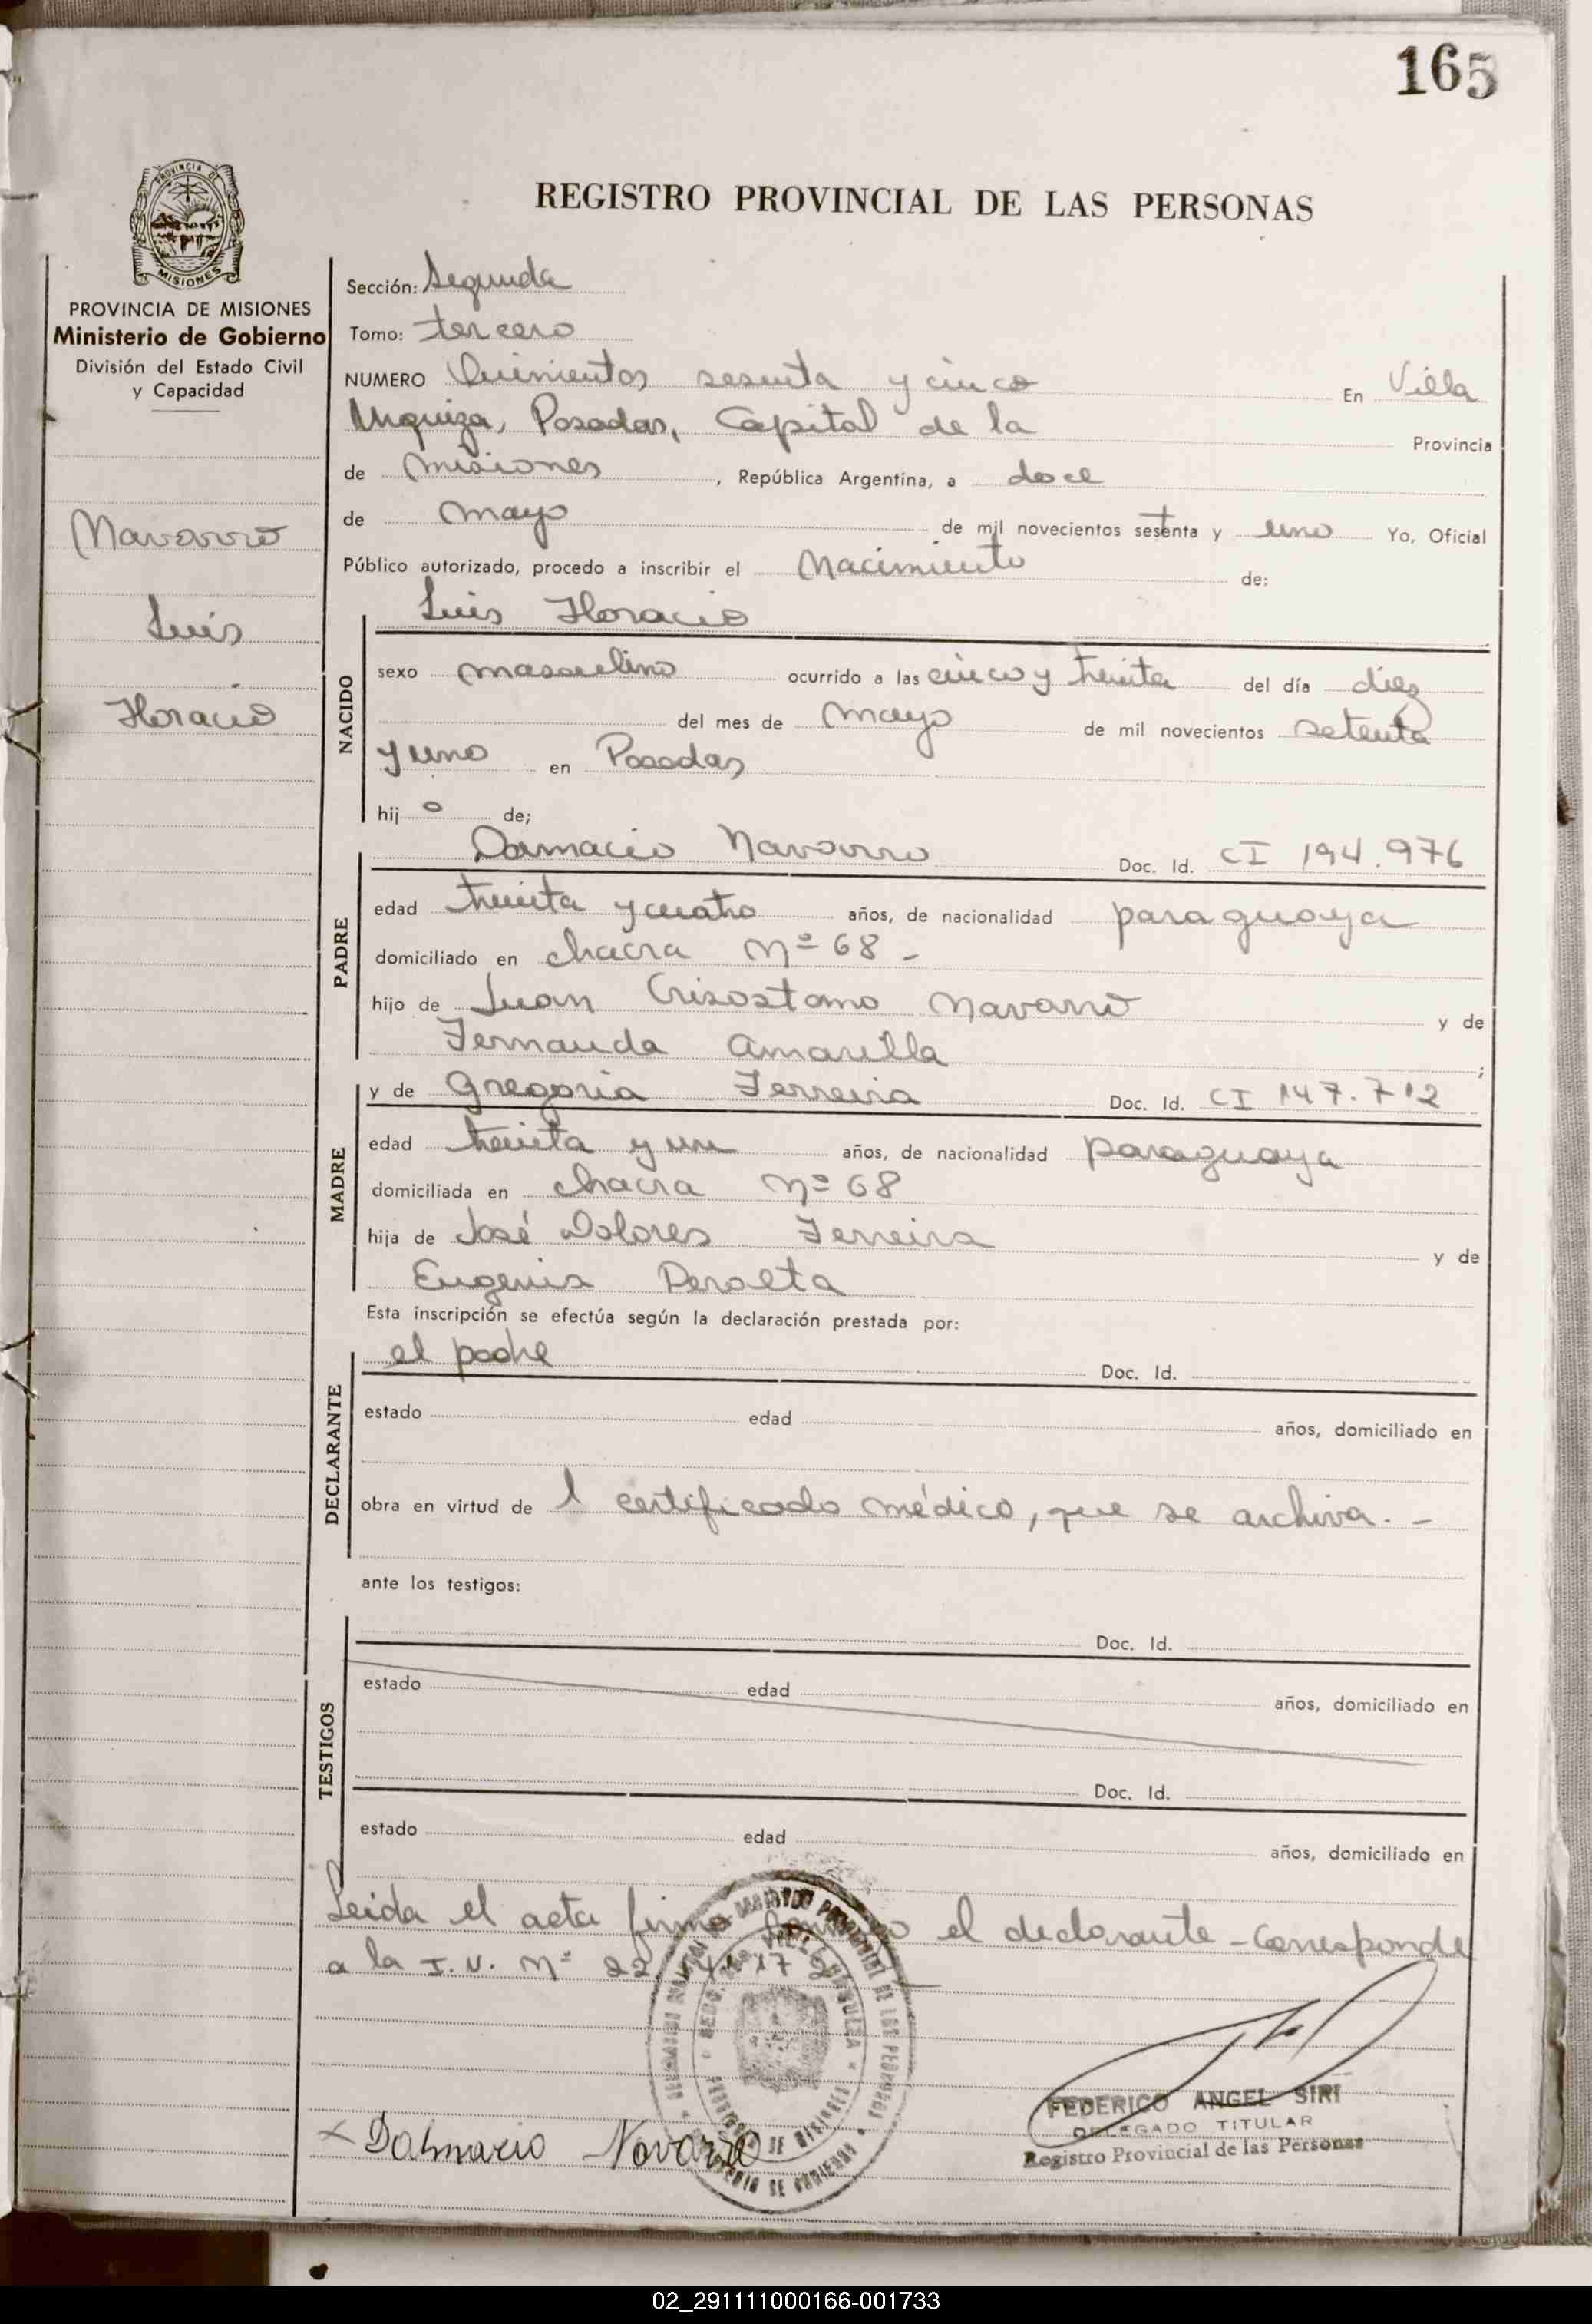 165
PROVINCIA DE
MISIONES
REGISTRO PROVINCIAL DE LAS PERSONAS
PROVINCIA DE MISIONES
Ministerio de Gobierno
División del Estado Civil
y Capacidad
Navarro
Luis
Horacio
Sección: Segunda
Tomo: tercero
NUMERO Quinientos sesenta y cinco En Villa
Urquiza, Posadas, Capital de la Provincia
de Misiones, República Argentina, a doce
de mayo de mil novecientos setenta y uno Yo, Oficial
Público autorizado, procedo a inscribir el Nacimiento de:
Luis Horacio
NACIDO
sexo masculino ocurrido a las cinco y treinta del día diez
del mes de mayo de mil novecientos setenta
y uno en Posadas
hijo de;
PADRE
Damacio Navarro Doc. Id. CI 194.976
edad treinta y cuatro años, de nacionalidad paraguaya
domiciliado en chacra Nº 68 -
hijo de Juan Crisostomo Navarro y de
Fernanda Amarilla ;
MADRE
y de Gregoria Ferreira Doc. Id. CI 147.712
edad treinta y un años, de nacionalidad paraguaya
domiciliada en chacra Nº 68
hija de José Dolores Ferreira y de
Eugenia Peralta
Esta inscripción se efectúa según la declaración prestada por:
DECLARANTE
el padre Doc. Id.
estado edad años, domiciliado en
obra en virtud de 1 certificado médico, que se archiva. -
ante los testigos:
TESTIGOS
Doc. Id.
estado edad años, domiciliado en
Doc. Id.
estado edad años, domiciliado en
Leida el acta firma el declarante - Corresponde
a la I.U. Nº 22.
FEDERICO ANGEL SIRI
DELEGADO TITULAR
Registro Provincial de las Personas
x Dalmacio Navarro
02_291111000166-001733